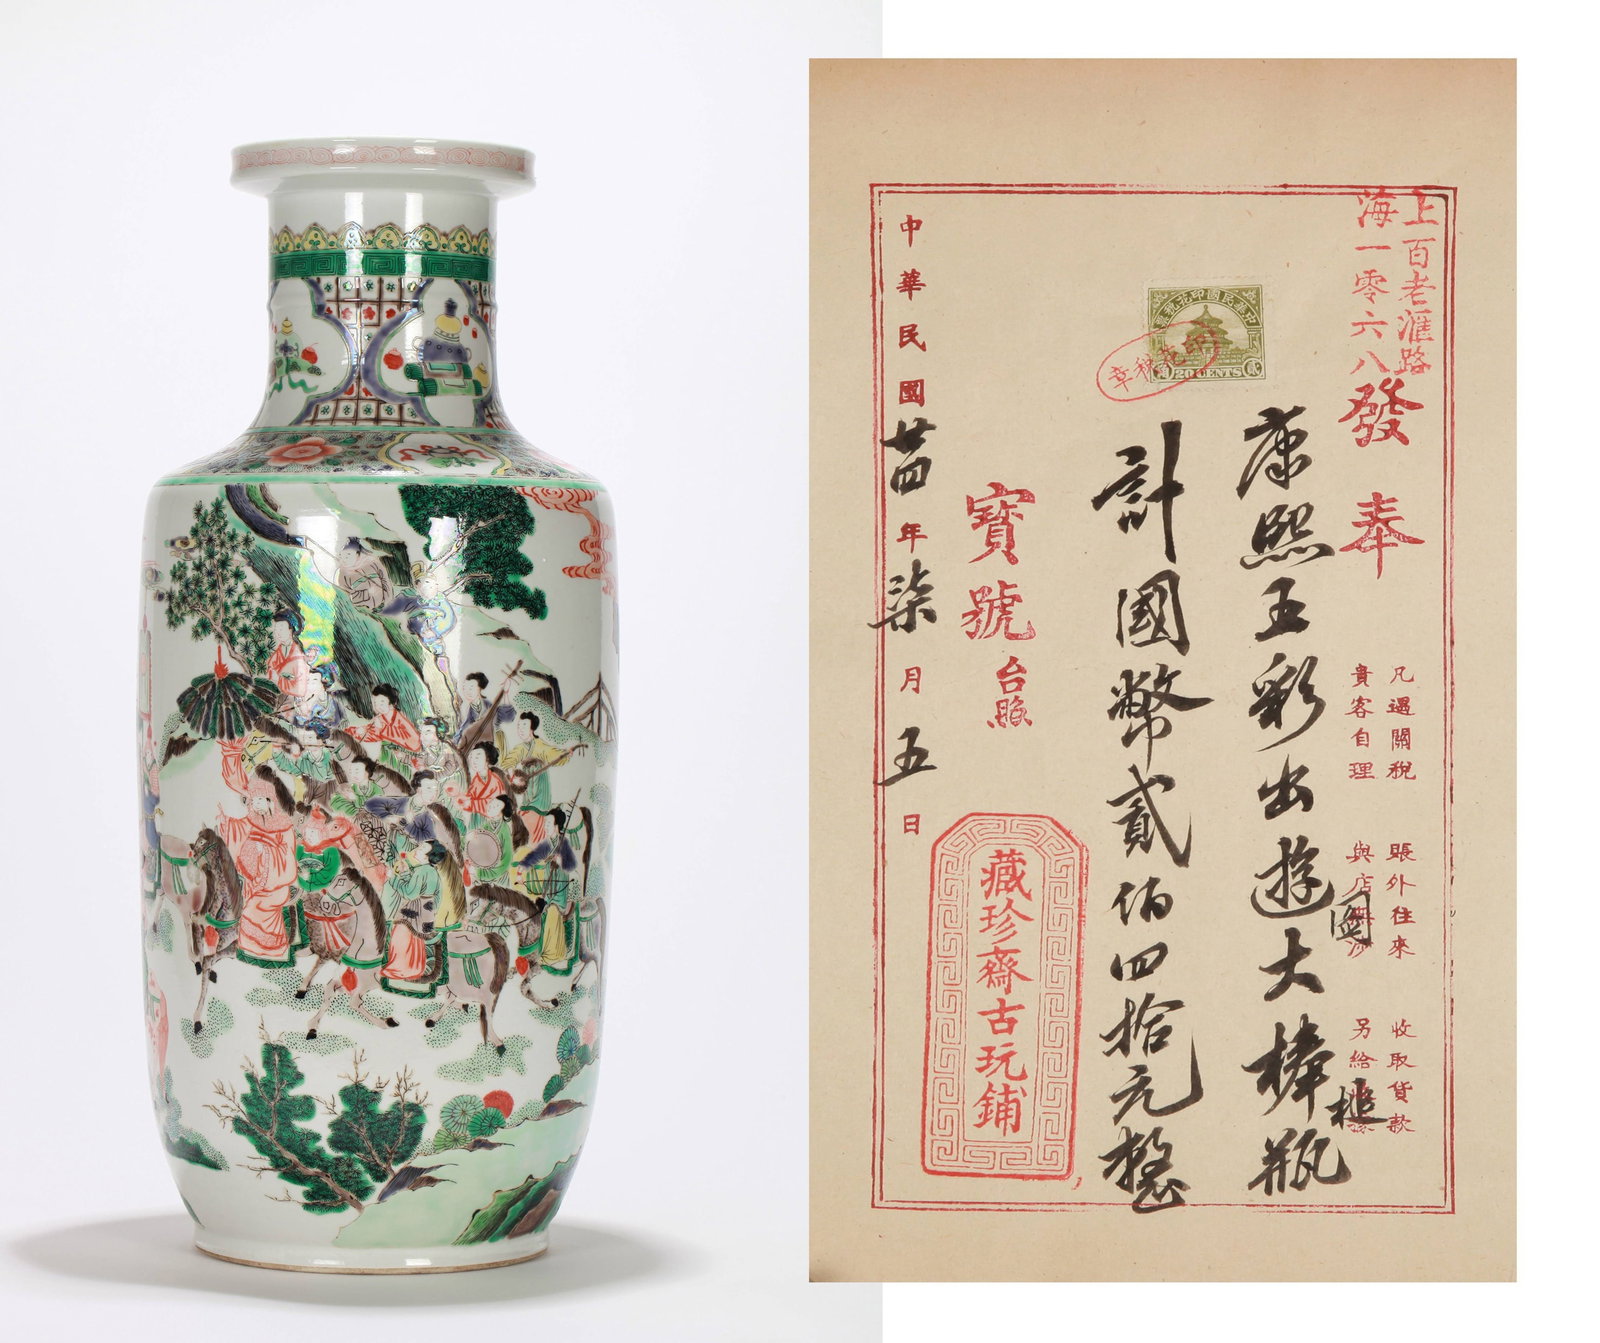 上百老滙路
海一零六八
發奉
凡遇關稅
貴客自理
賬外往來
與店
收取貨款
另給
康熙五彩出遊圖大棒槌瓶
中華民國印花稅票
20 CENTS
貳
角
印花稅章
計國幣貳佰四拾元整
寶號台照
藏珍齋古玩鋪
中華民國廿四年柒月五日